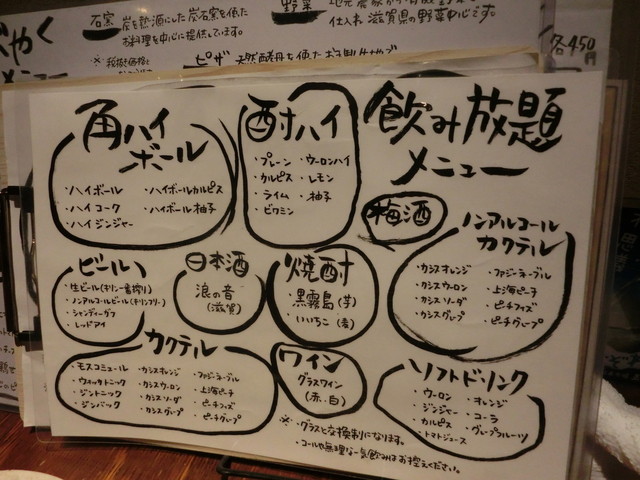 石窯
炭を熱源にした炭石窯を使た
お料理を中心に提供しています。
野菜
仕入れ滋賀県の野菜中心です。
ピザ
天然酵母を使た
メニュー
各450
円
飲み放題
メニュー
角ハイ
ボール
・ハイボール
・ハイコーク
・ハイジンジャー
・ハイボールカルピス
・ハイボール柚子
酎ハイ
・プレーン
・カルピス
・ライム
・ビタミン
・ウーロンハイ
・レモン
・柚子
梅酒
ノンアルコール
カクテル
・カシスオレンジ
・カシスウーロン
・カシスソーダ
・カシスグレープ
・ファジーネーブル
・上海ピーチ
・ピーチフィズ
・ピーチグレープ
ビール
・生ビール(キリン一番搾り)
・ノンアルコールビール(キリンフリー)
・シャンディーガフ
・レッドアイ
日本酒
浪の音
(滋賀)
焼酎
・黒霧島(芋)
・いいちこ(麦)
カクテル
・モスコミュール
・ウォッカトニック
・ジントニック
・ジンバック
・カシスオレンジ
・カシスウーロン
・カシスソーダ
・カシスグレープ
・ファジーネーブル
・上海ピーチ
・ピーチフィズ
・ピーチグレープ
ワイン
グラスワイン
(赤・白)
ソフトドリンク
・ウーロン
・ジンジャー
・カルピス
・トマトジュース
・オレンジ
・コーラ
・グレープフルーツ
※・グラスと交換制になります。
・コールや無理な一気飲みはお控えください。